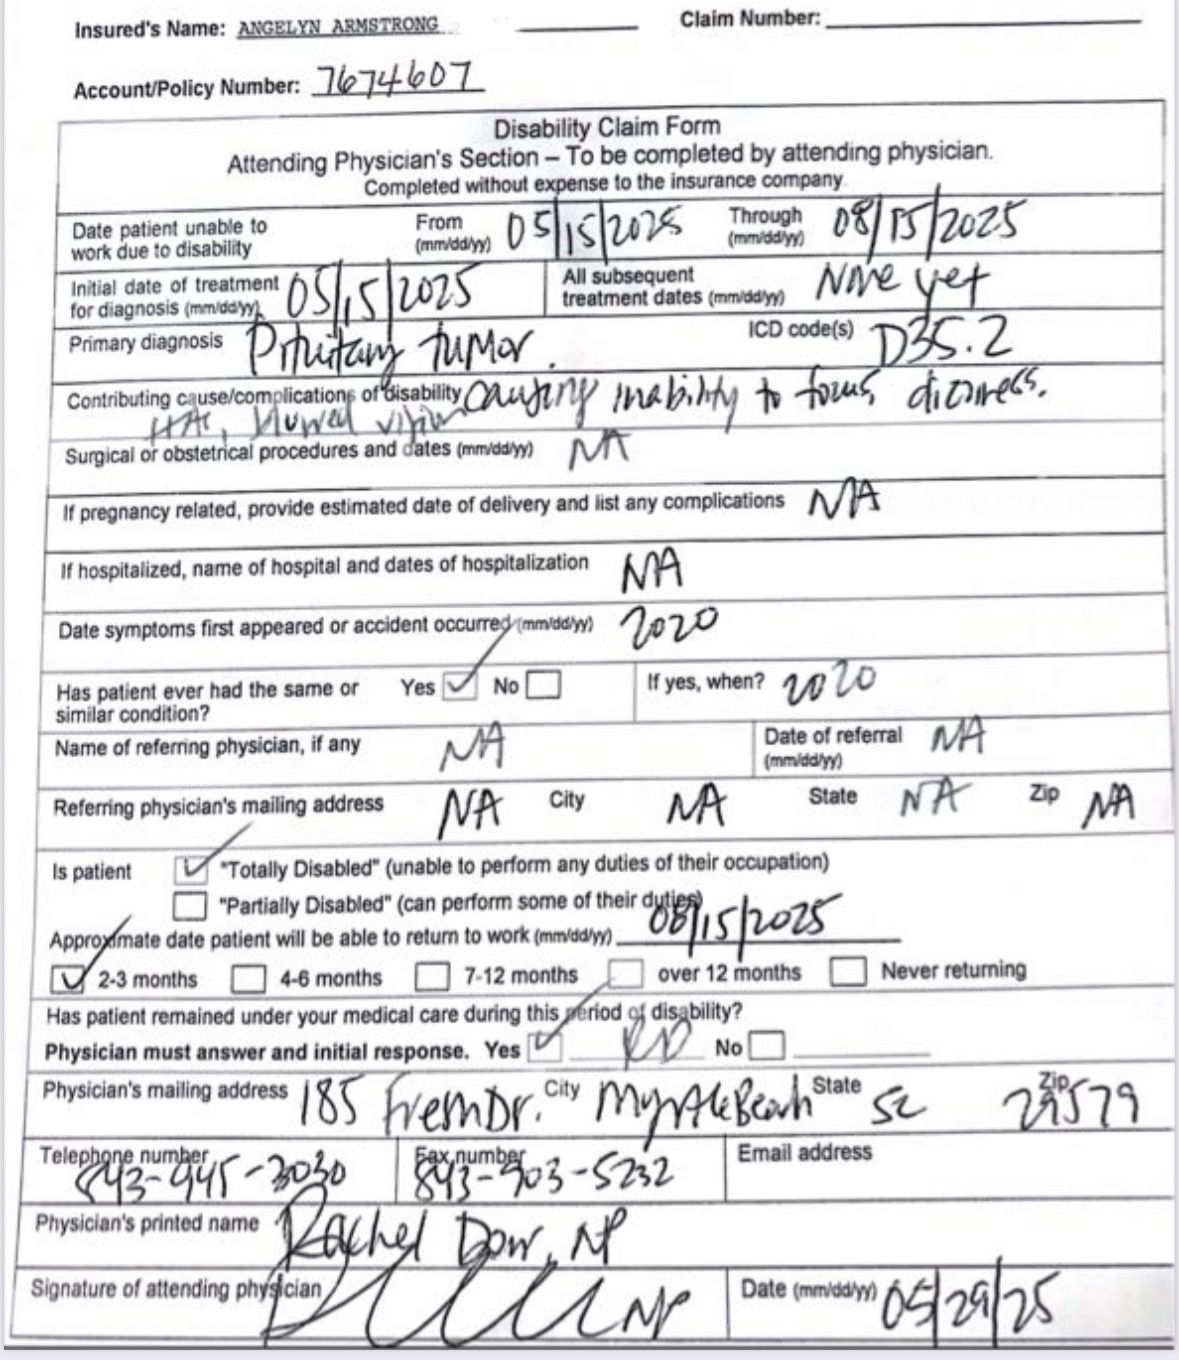 Insured's Name: ANGELYN ARMSTRONG Claim Number:
Account/Policy Number: 7674607
Disability Claim Form
Attending Physician's Section – To be completed by attending physician.
Completed without expense to the insurance company
Date patient unable to work due to disability From (mm/dd/yy) 05/15/2025 Through (mm/dd/yy) 08/15/2025
Initial date of treatment for diagnosis (mm/dd/yy) 05/15/2025 All subsequent treatment dates (mm/dd/yy) None yet
Primary diagnosis Pituitary tumor. ICD code(s) D35.2
Contributing cause/complications of disability causing inability to focus, dizziness.
HA, blurred vision
Surgical or obstetrical procedures and dates (mm/dd/yy) NA
If pregnancy related, provide estimated date of delivery and list any complications NA
If hospitalized, name of hospital and dates of hospitalization NA
Date symptoms first appeared or accident occurred (mm/dd/yy) 2020
Has patient ever had the same or similar condition? Yes No If yes, when? 2020
Name of referring physician, if any NA Date of referral (mm/dd/yy) NA
Referring physician's mailing address NA City NA State NA Zip NA
Is patient "Totally Disabled" (unable to perform any duties of their occupation)
"Partially Disabled" (can perform some of their duties)
Approximate date patient will be able to return to work (mm/dd/yy) 08/15/2025
2-3 months 4-6 months 7-12 months over 12 months Never returning
Has patient remained under your medical care during this period of disability?
Physician must answer and initial response. Yes RD No
Physician's mailing address 185 Dr. City Myrtle Beach State SC Zip 29579
Telephone number 843-945-3030 Fax number 843-903-5232 Email address
Physician's printed name Rachel Dorr, NP
Signature of attending physician NP Date (mm/dd/yy) 05/29/25